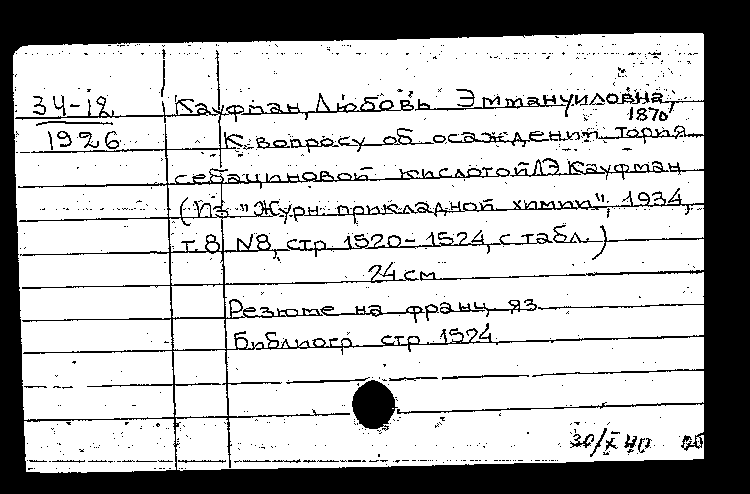 34-12
1926
Кауфман, Любовь Эммануиловна, 1870
К вопросу об осаждении тория
себациновой кислотой Л.Э.Кауфман
(Из "Журн. прикладной химии", 1934,
т. 8, №8, стр. 1520-1524, с табл.)
24 см
Резюме на франц. яз.
Библиогр. стр. 1524.
30/X 40